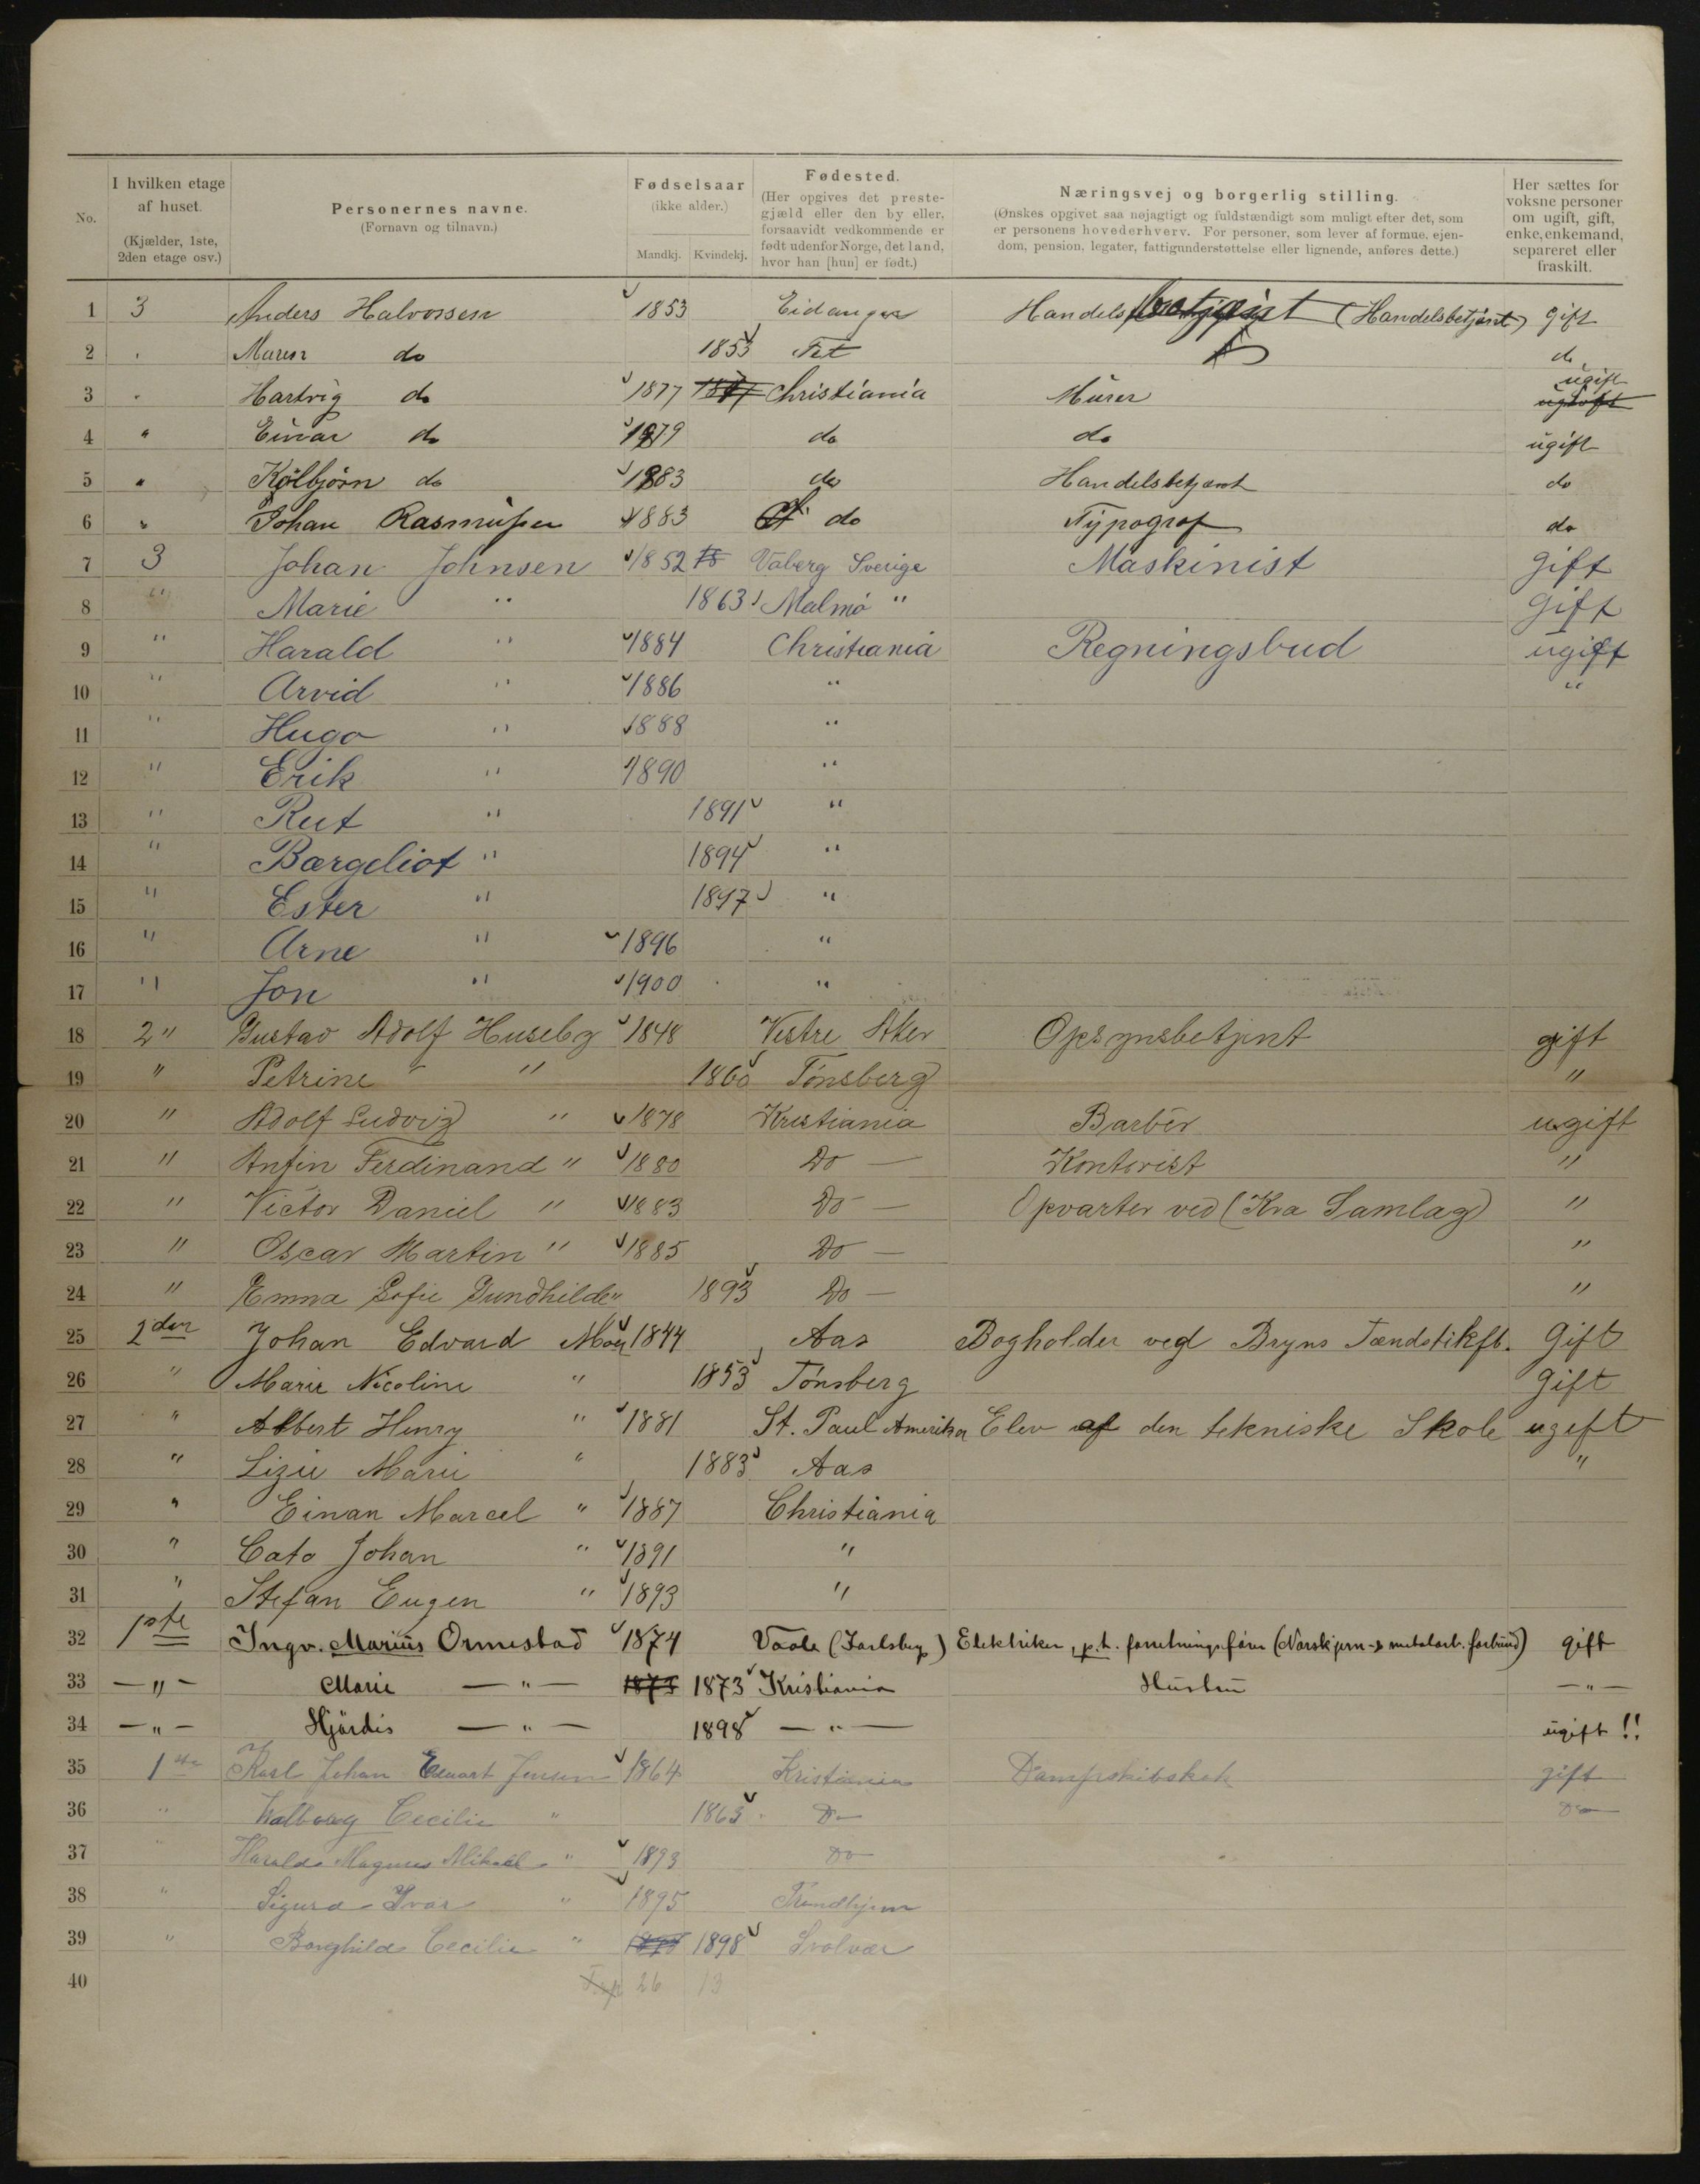 No. | I hvilken etage af huset. (Kjælder, 1ste, 2den etage osv.) | Personernes navne. (Fornavn og tilnavn.) | Fødselsaar (ikke alder.) Mandkj. Kvindekj. | Fødested. (Her opgives det prestegjæld eller den by eller, forsaavidt vedkommende er født udenfor Norge, det land, hvor han [hun] er født.) | Næringsvej og borgerlig stilling. (Ønskes opgivet saa nøjagtigt og fuldstændigt som muligt efter det, som er personens hovederhverv. For personer, som lever af formue, ejendom, pension, legater, fattigunderstøttelse eller lignende, anføres dette.) | Her sættes for voksne personer om ugift, gift, enke, enkemand, separeret eller fraskilt.
1 3 Anders Halvorssen 1853 Eidanger Handelsbetjent (Handelsbetjent) gift
2 " Maren do 1853 Fet do
3 " Hartvig do 1877 Christiania Murer ugift
4 " Einar do 1879 do do ugift
5 " Kolbjørn do 1883 do Handelsbetjent do
6 " Johan Rasmussen 1883 do Typograf do
7 3 Johan Johnsen 1852 Vaberg Sverige Maskinist Gift
8 " Marie " 1863 Malmø " Gift
9 " Harald " 1884 Christiania Regningsbud ugift
10 " Arvid " 1886 " "
11 " Hugo " 1888 "
12 " Erik " 1890 "
13 " Rut " 1891 "
14 " Bærgeliot " 1894 "
15 " Ester " 1897 "
16 " Arne " 1896 "
17 " Jon " 1900 "
18 2 " Gustav Adolf Huseby 1848 Vestre Aker Opsynsbetjent gift
19 " Petrine " 1860 Tønsberg "
20 " Adolf Ludvig " 1878 Kristiania Barbér ugift
21 " Anfin Ferdinand " 1880 Do — Kontorist "
22 " Victor Daniel " 1883 Do — Opvarter ved (Kra Samlag) "
23 " Oscar Martin " 1885 Do — "
24 " Emma Sofie Gundhilde " 1893 Do — "
25 2den Johan Edvard Moy 1844 Aas Bogholder ved Bryns Tændstikfb. Gift
26 " Marie Nicoline " 1853 Tønsberg Gift
27 " Albert Henry " 1881 St. Paul Amerika Elev af den tekniske Skole ugift
28 " Lizie Marie " 1883 Aas "
29 " Einan Marcel " 1887 Christiania
30 " Cato Johan " 1891 "
31 " Stefan Eugen " 1893 "
32 1ste Ingv. Marius Ormestad 1874 Vaale (Jarlsberg) Elektriker, p.t. forretningsfører (Norsk jern- & metalarb. forbund) gift
33 — " — Marie — " — 1873 1873 Kristiania Hustru — " —
34 — " — Hjørdis — " — 1898 — " — ugift !!
35 1ste Karl Johan Edvart Jensen 1864 Kristiania Dampskibskok gift
36 " Walborg Cecilie " 1863 Do Do
37 " Harald Magnus Mikael " 1893 Do
38 " Sigurd Ivar " 1895 Trondhjem
39 " Borghild Cecilie " 1898 Svolvær
40 26 13